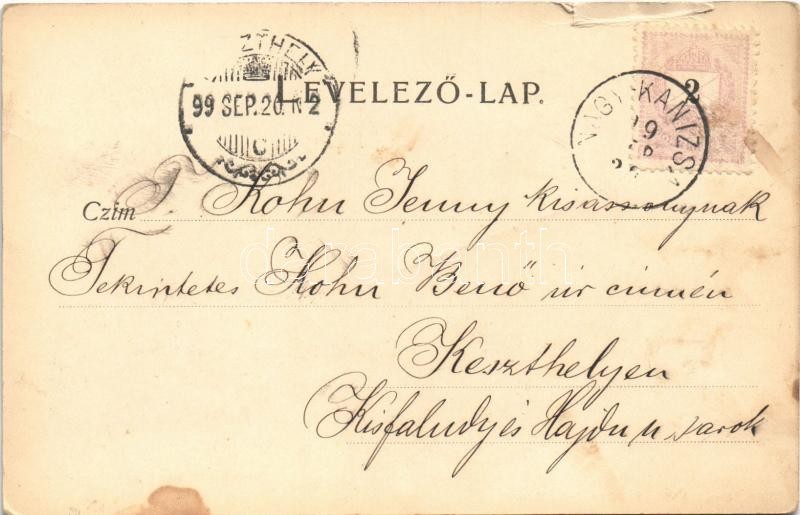 LEVELEZŐ-LAP.
ZTHELY
99 SEP. 20. N 2
C
2
NAGY-KANIZSA
Czím T. Kohn Jenny kisasszonynak
Tekintetes Kohn Benő úr címén
Keszthelyen
Kisfaludy és Hajdu u sarok
darabanth